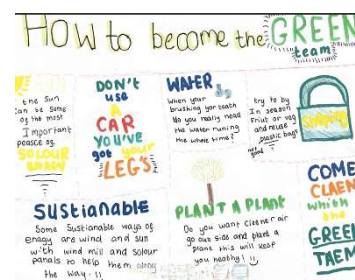 How to become the GREEN
team
the Sun
can be some
of the most
Important
peasce og
SOLOUR
ENAGY
DON'T
use
A
CAR
YOU'VE
got your
LEG'S
WATER
When your
brushing yor teath
do you really need
the water runing
the whole time?
try to by
In season
Fruit or veg
and reuse
plastic bags
not
good
Sustianable
Some Sustianable ways of
enagy are wind and sun
with wind mill and solour
panals to help them along
the way.!!
PLANT A PLANT
Do you want cleaner air
go out side and plant a
plant this will keep
you healthy!
COME
CLAEN
Whith
the
GREEN
TAEM